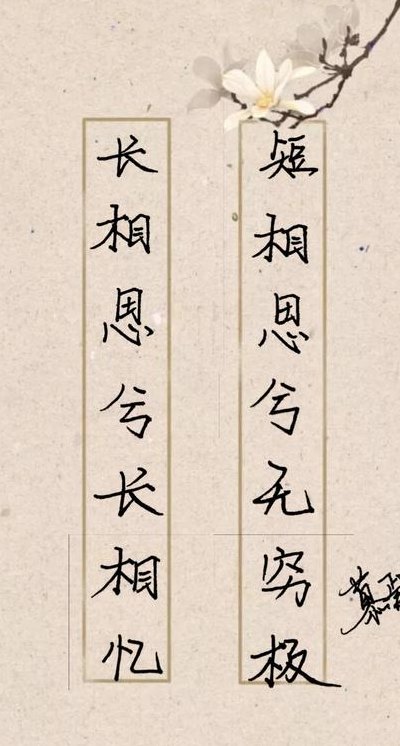 长相思兮长相忆
短相思兮无穷极
慕